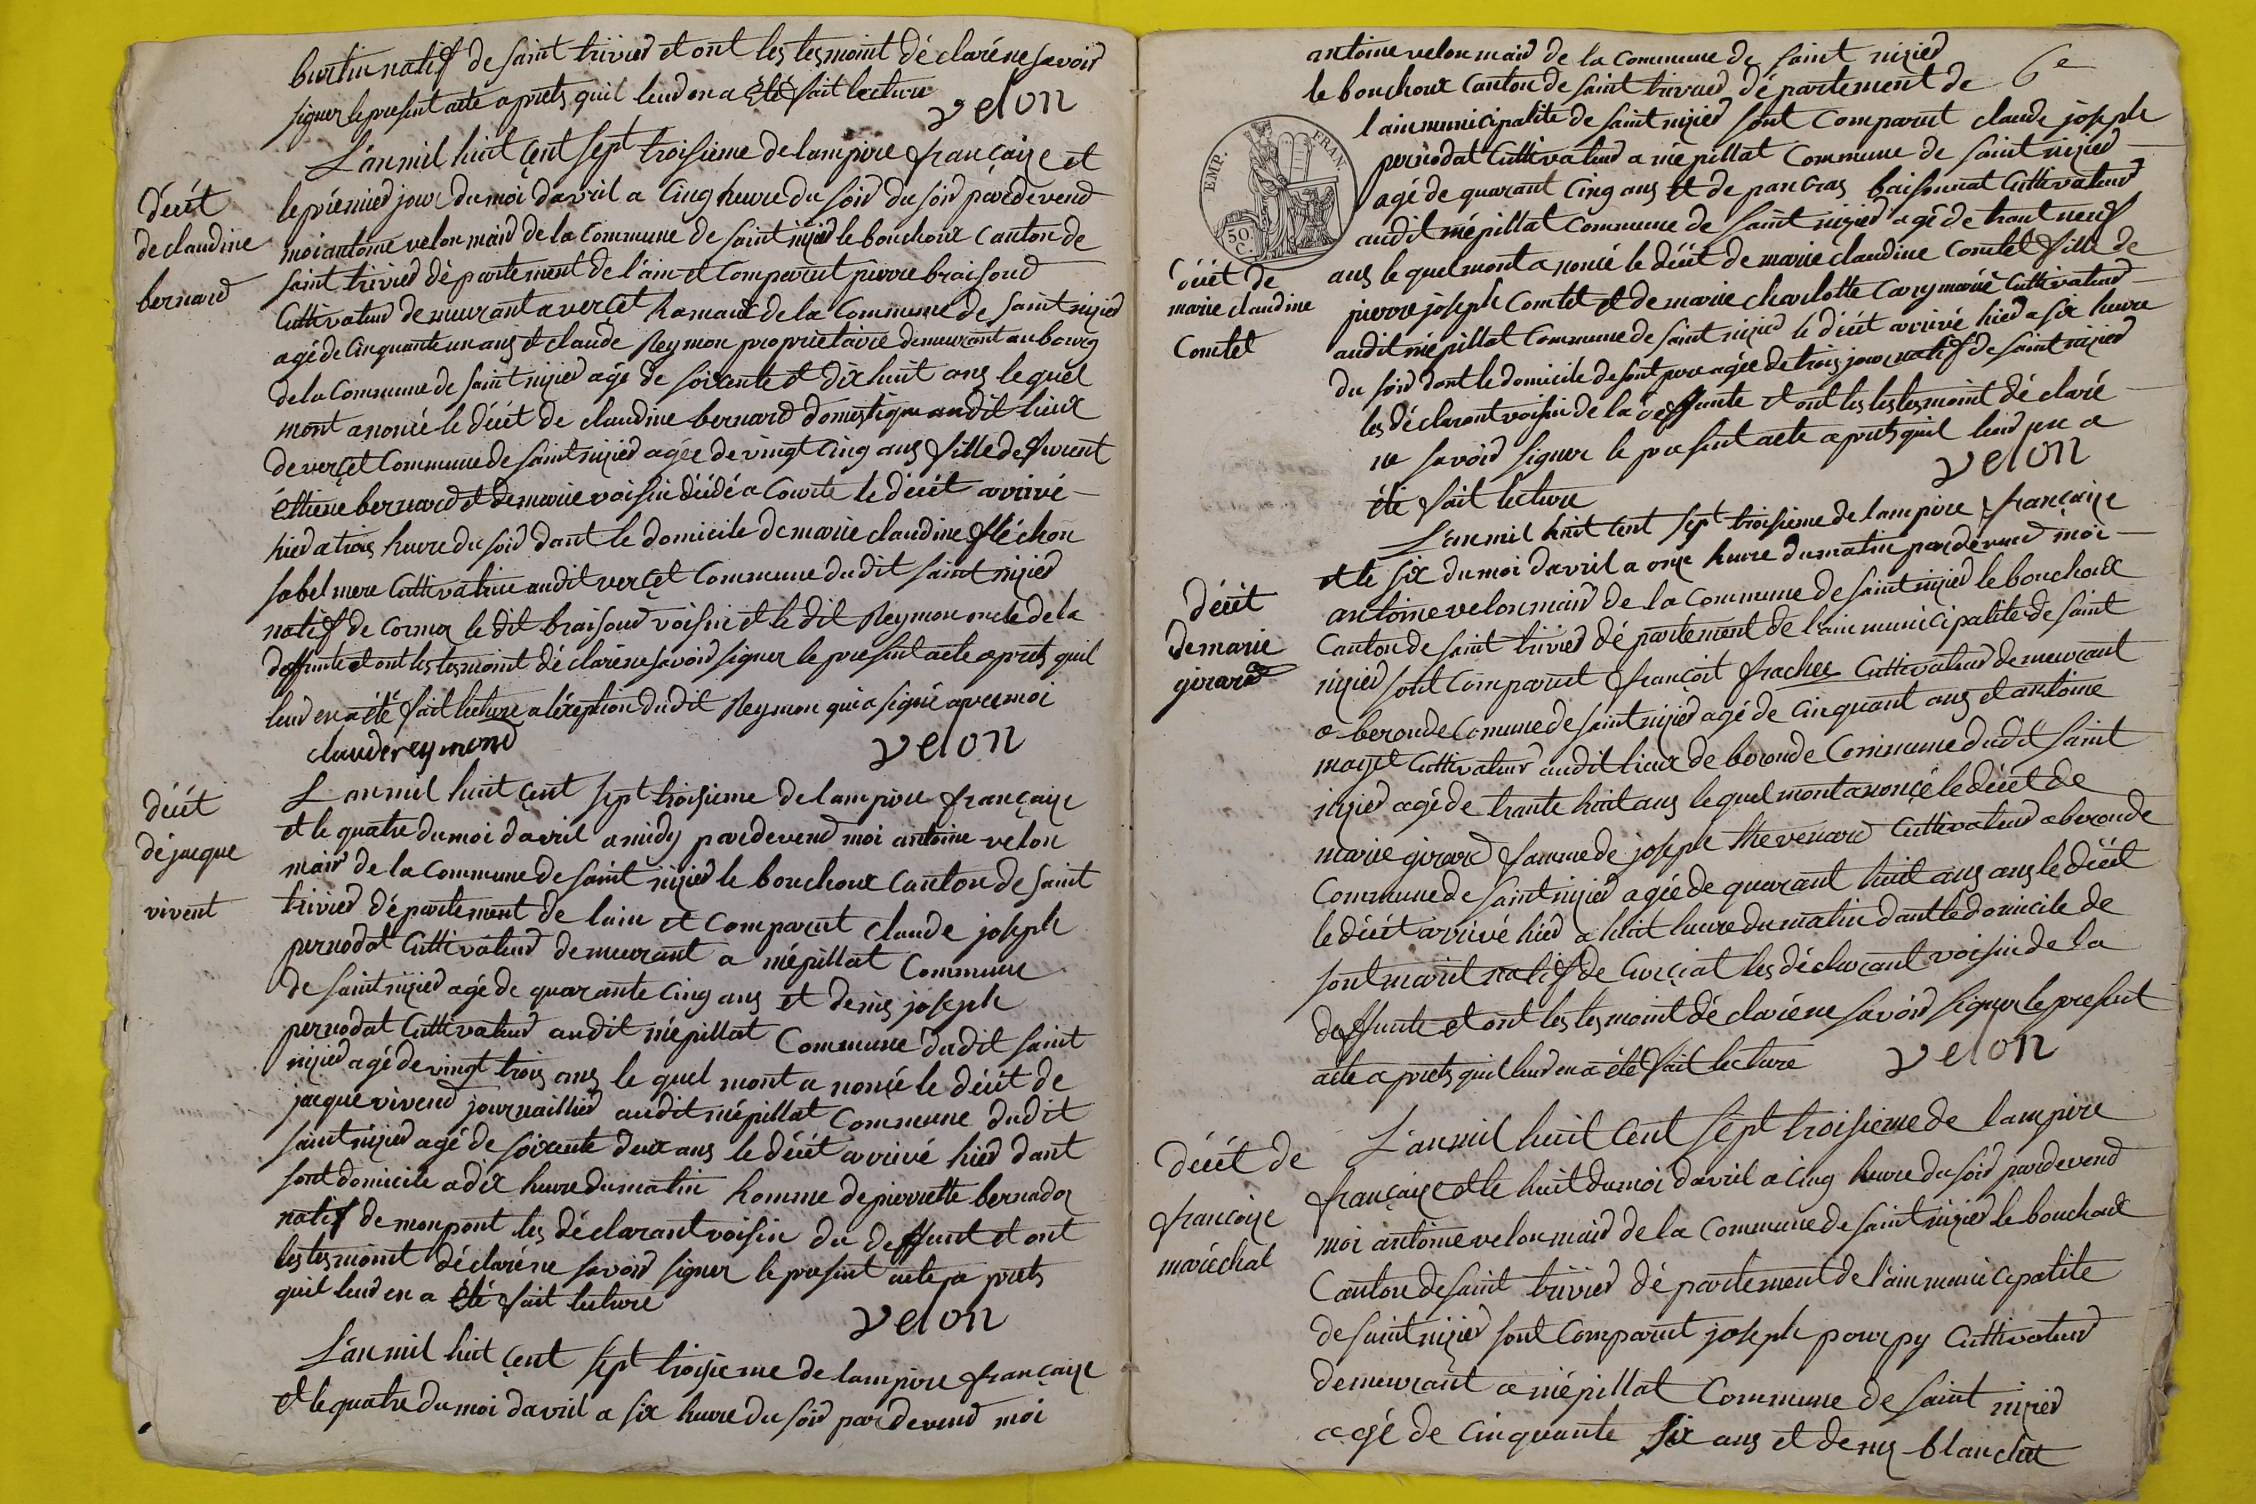 burtin natif de saint trivied et ont les tesmoint dé claré ne savoir
signer le present acte aprets quil leud en a été fait lecture
velon
L'an mil huit çent sept troisieme de lampire françaize et
le premied jour du moi davril a cinq heure du soid du soid pardevend
décét
de claudine
bernard
moi antoine velon maid de la commune de saint nizied le bouchoux canton de
saint trivied département de l'ain et comparut pierre braisoud
cuttivateud demeurant a verçet hamaud de la commune de saint nizied
agé de cinquante un ans et claude Reymon propriétaire demeurant au bourg
de la commune de saint nizied agé de soixente et dix huit ans le quel
mont anoncé le décét de claudine bernard domestique audit lieux
de verçet commune de saint nizied agée de vingt cinq ans fille de furent
éttiene bernard et de marie voisin décédé a courte le décét arrivé
hied a trois heure du soid dant le domicile de marie claudine fléchon
sabel mere cuttivatrice audit verçet commune dudit saint nizied
natif de cormoz le dit braisoud voisin et le dit Reymon oncle de la
deffunte et ont les tesmoint dé claré ne savoid signer le present acte aprets quil
leud en a été fait lecture a léxeption dudit Reymon qui a signé apres moi
claude reymond
velon
décét
dé jacque
vivent
L an mil huit çent sept troisieme de lampire françaize
et le quatre du moi davril a midy pardevend moi antoine velon
maid de la commune de saint nizied le bouchoux canton de saint
trivied département de lain et comparut claude joseph
pernodat cuttivateud demeurant a mépillat commune
de saint nizied agé de quarante cinq ans et denis joseph
pernodat cuttivateud audit mépillat commune dudit saint
nizied agé de vingt trois ans le quel mont a noncé le décét de
jacque vivend journaillied audit mépillat commune dudit
saint nizied agé de soixente deux ans le décét arrivé hied dant
sont domicile a dix heure du matin homme de pierrette bernadoz
natif de monpont les déclarant voisin du deffunt et ont
les tesmoint déclaré ne savoid signer le present acte a prets
quil leud en a été fait lecture
velon
L'an mil huit çent sept troisieme de lampire françaize
et le quatre du moi davril a six heure du soid par devend moi
antoine velon maid de la commune de saint nizied
6e
le bouchoux canton de saint trivied département de
l ain municipalité de saint nizied sont comparut claude joseph
pernodat cuttivateud a mépillat commune de saint nizied
EMP. FRAN.
50 C.
agé de quarant cinq ans et de pancras baisonnat cuttivateud
audit mépillat commune de saint nizied agé de trant neuf
ans le quel mont a noncé le décét de marie claudine comtet fille de
décét de
marie claudine
Comtet
pierre joseph comtet et de marie charlotte carry marié cuttivateud
audit mépillat commune de saint nizied le décét arrivé hied a six heure
du soid dant le domicile de sont pere agée de trois jour natif de saint nizied
les déclarant voisin de la deffunte et ont les tesmoint dé claré
ne savoid signer le present acte aprets quil leud en a
été fait lecture
velon
L'an mil huit cent sept troisieme de lampire françaize
et le six du moi davril a onze heure du matin pardevend moi
décét
de marie
girard
antoine velon maid de la commune de saint nizied le bouchoux
canton de saint trivied département de l'ain municipalité de saint
nizied sont comparut françoit frachet cuttivateud demeurant
a beronde comune de saint nizied agé de cinquant ans et antoine
mazet cuttivateur audit lieux de beronde commune dudit saint
nizied agé de trante huit ans le quel mont anoncé le décét de
marie girard famme de joseph thevenard cuttivateud a beronde
commune de saint nizied agée de quarant huit ans ans le décét
le décét arrivé hied a huit heure du matin dant le domicile de
sont marit natif de curciat les déclarant voisin de la
deffunte et ont les tesmoint dé claré ne savoid signer le present
acte a prets quil leud en a été fait lecture
velon
L'an mil huit cent sept troisieme de lampire
décét de
françoize
maréchal
françaize et le huit du moi davril a cinq heure du soid pardevend
moi antoine velon maid de la commune de saint nizied le bouchoux
canton de saint trivied département de l'ain municipalite
de saint nizied sont comparut joseph pourpy cuttivateud
demeurant a mépillat commune de saint nizied
agé de cinquante six ans et denis blanchet